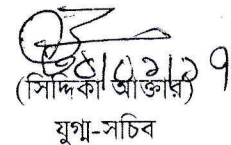 (সিদ্দিকা আক্তার)
যুগ্ম-সচিব